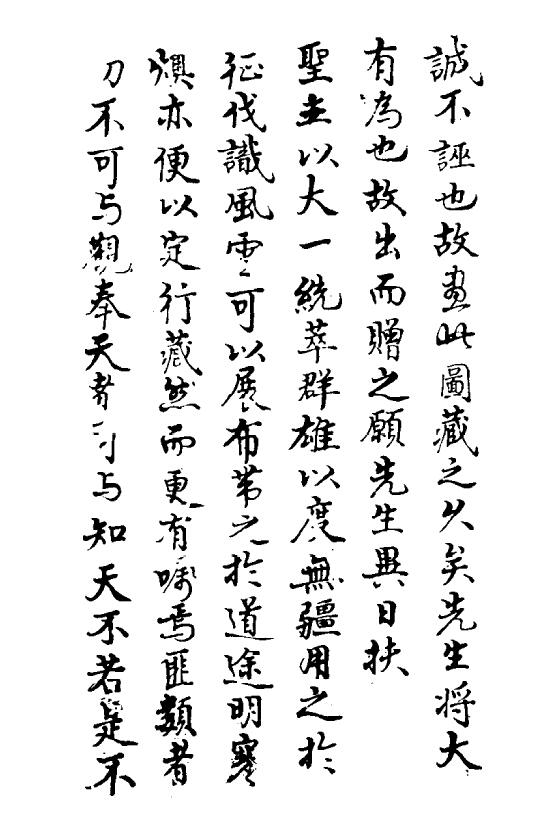 誠不誣也故畫此圖藏之久矣先生将大
有為也故出而贈之願先生異日扶
聖主以大一統萃群雄以度無疆用之於
征伐識風雲可以展布带之於道途明寒
燠亦便以定行藏然而更有嘱焉匪類者
刀不可与觀奉天者可与知天不若是不